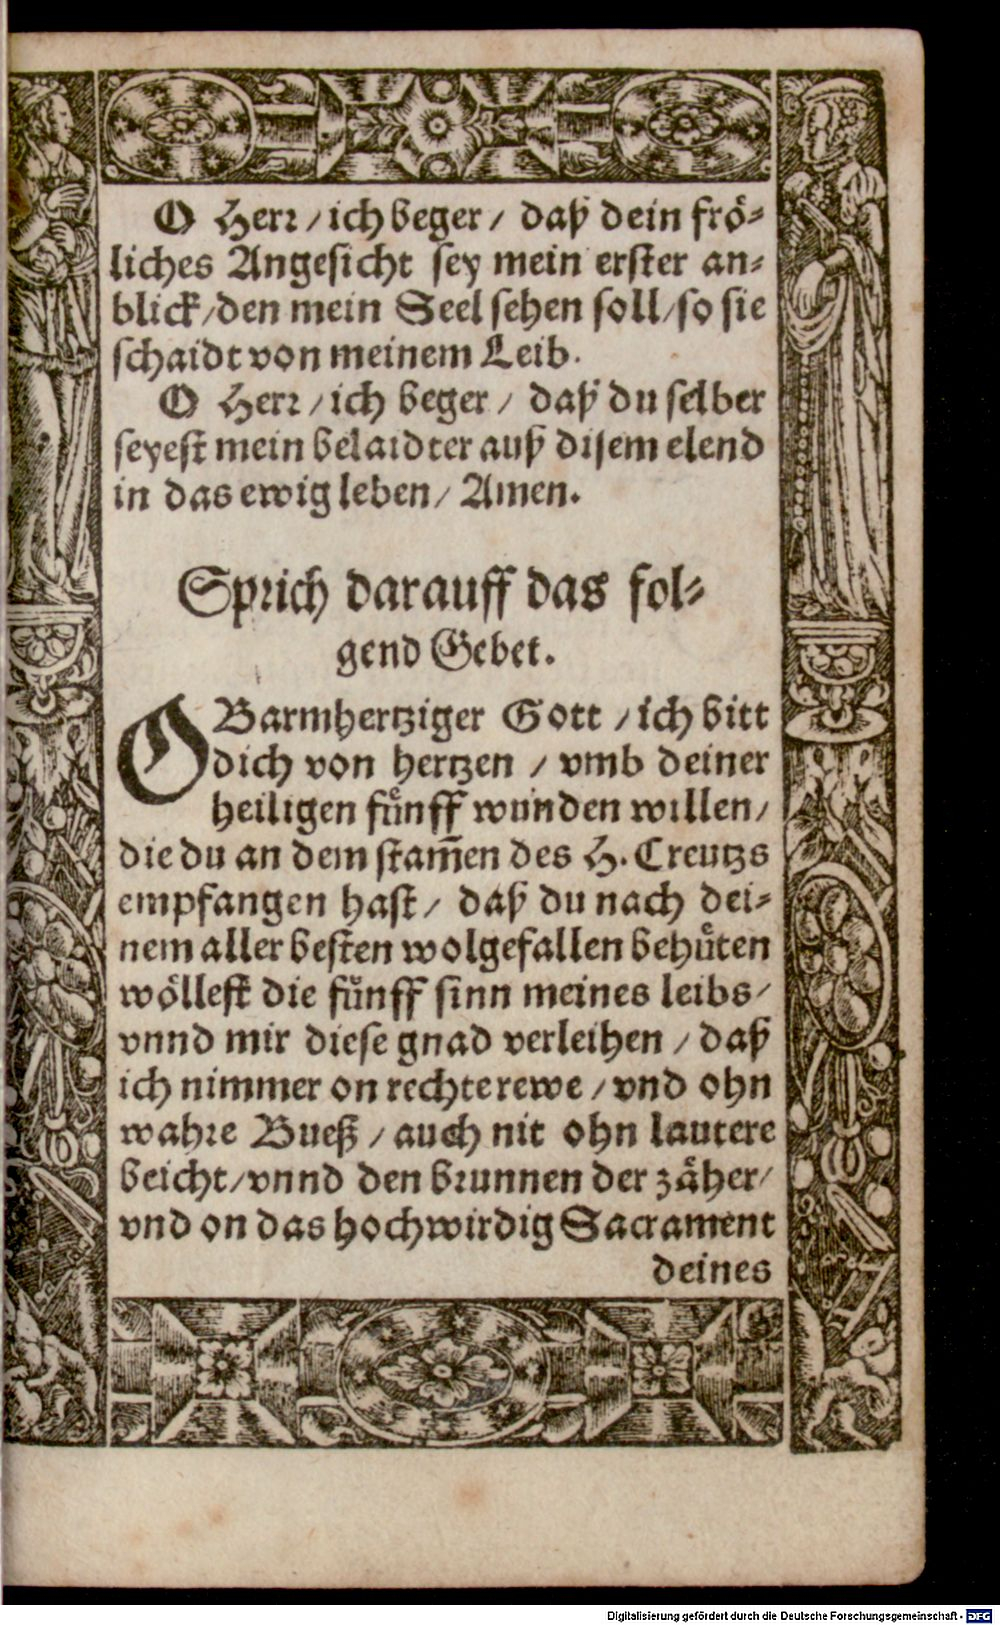 O Herr / ich beger / daß dein frö-
liches Angesicht sey mein erster an-
blick / den mein Seel sehen soll / so sie
schaidt von meinem Leib.
O Herr / ich beger / daß du selber
seyest mein belaidter auß disem elend
in das ewig leben / Amen.
Sprich darauff das fol-
gend Gebet.
O Barmhertziger Gott / ich bitt
dich von hertzen / vmb deiner
heiligen fuͤnff wunden willen /
die du an dem stam̃en des H. Creutzs
empfangen hast / daß du nach dei-
nem aller besten wolgefallen behuͤten
woͤllest die fuͤnff sinn meines leibs /
vnnd mir diese gnad verleihen / daß
ich nimmer on rechte rewe / vnd ohn
wahre Bueß / auch nit ohn lautere
beicht / vnnd den brunnen der zaͤher /
vnd on das hochwirdig Sacrament
deines
Digitalisierung gefördert durch die Deutsche Forschungsgemeinschaft - DFG